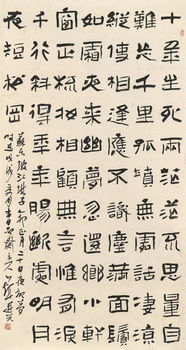 十年生死兩茫茫不思量自
難忘千里孤墳無處話淒涼
縱使相逢應不識塵滿面鬢
如霜夜來幽夢忽還鄉小軒
窗正梳妝相顧無言惟有淚
千行料得年年腸斷處明月
夜短松岡
蘇東坡江城子乙卯正月二十日夜記夢